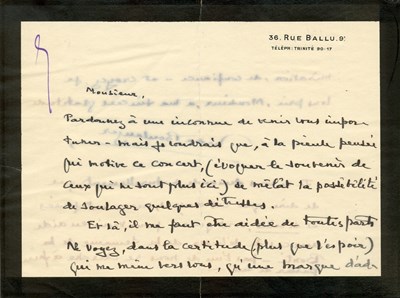 36, RUE BALLU. 9e
TÉLÉPH: TRINITÉ 90-17
Monsieur,
Pardonnez à une inconnue de venir vous impor-
tuner - mais je voudrais que, à la pieuse pensée
qui motive ce concert, (évoquer le souvenir de
ceux qui ne sont plus ici) se mêlât la possibilité
de soulager quelques détresses.
Et là, il me faut être aidée de toutes parts
Ne voyez, dans la certitude (plus que l'espoir)
qui me mène vers vous, qu'une marque d'ad-